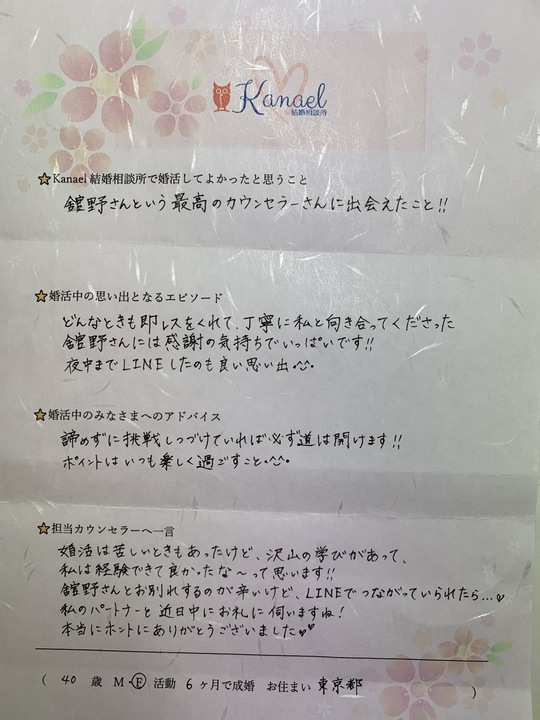 Kanael
結婚相談所
Kanael 結婚相談所で婚活してよかったと思うこと
舘野さんという最高のカウンセラーさんに出会えたこと!!
婚活中の思い出となるエピソード
どんなときも即レスをくれて、丁寧に私と向き合ってくださった
舘野さんには感謝の気持ちでいっぱいです!!
夜中までLINEしたのも良い思い出•^^•
婚活中のみなさまへのアドバイス
諦めずに挑戦しつづけていれば必ず道は開けます!!
ポイントはいつも楽しく過ごすこと•^^•
担当カウンセラーへ一言
婚活は苦しいときもあったけど、沢山の学びがあって、
私は経験できて良かったな〜って思います!!
舘野さんとお別れするのが辛いけど、LINEでつながっていられたら...♡
私のパートナーと近日中にお礼に伺いますね!
本当にホントにありがとうございました♥♥
( 40 歳 M・F 活動 6 ヶ月で成婚 お住まい 東京都 )